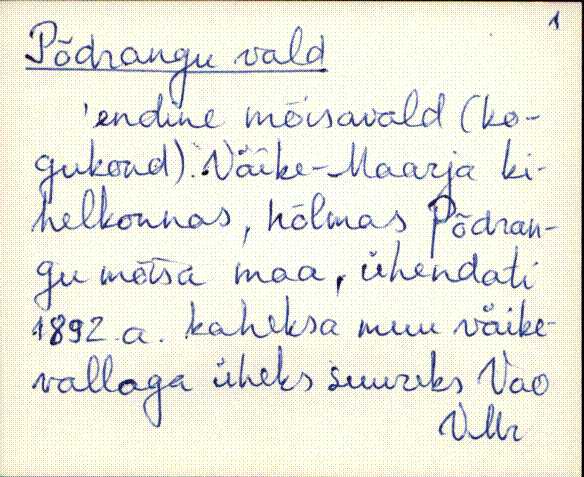 1
Põdrangu vald
endine mõisavald (ko-
gukond). Väike-Maarja ki-
helkonnas, hõlmas Põdran-
gu mõisa maa, ühendati
1892.a. kaheksa muu väike-
vallaga üheks suureks Vao
VMr